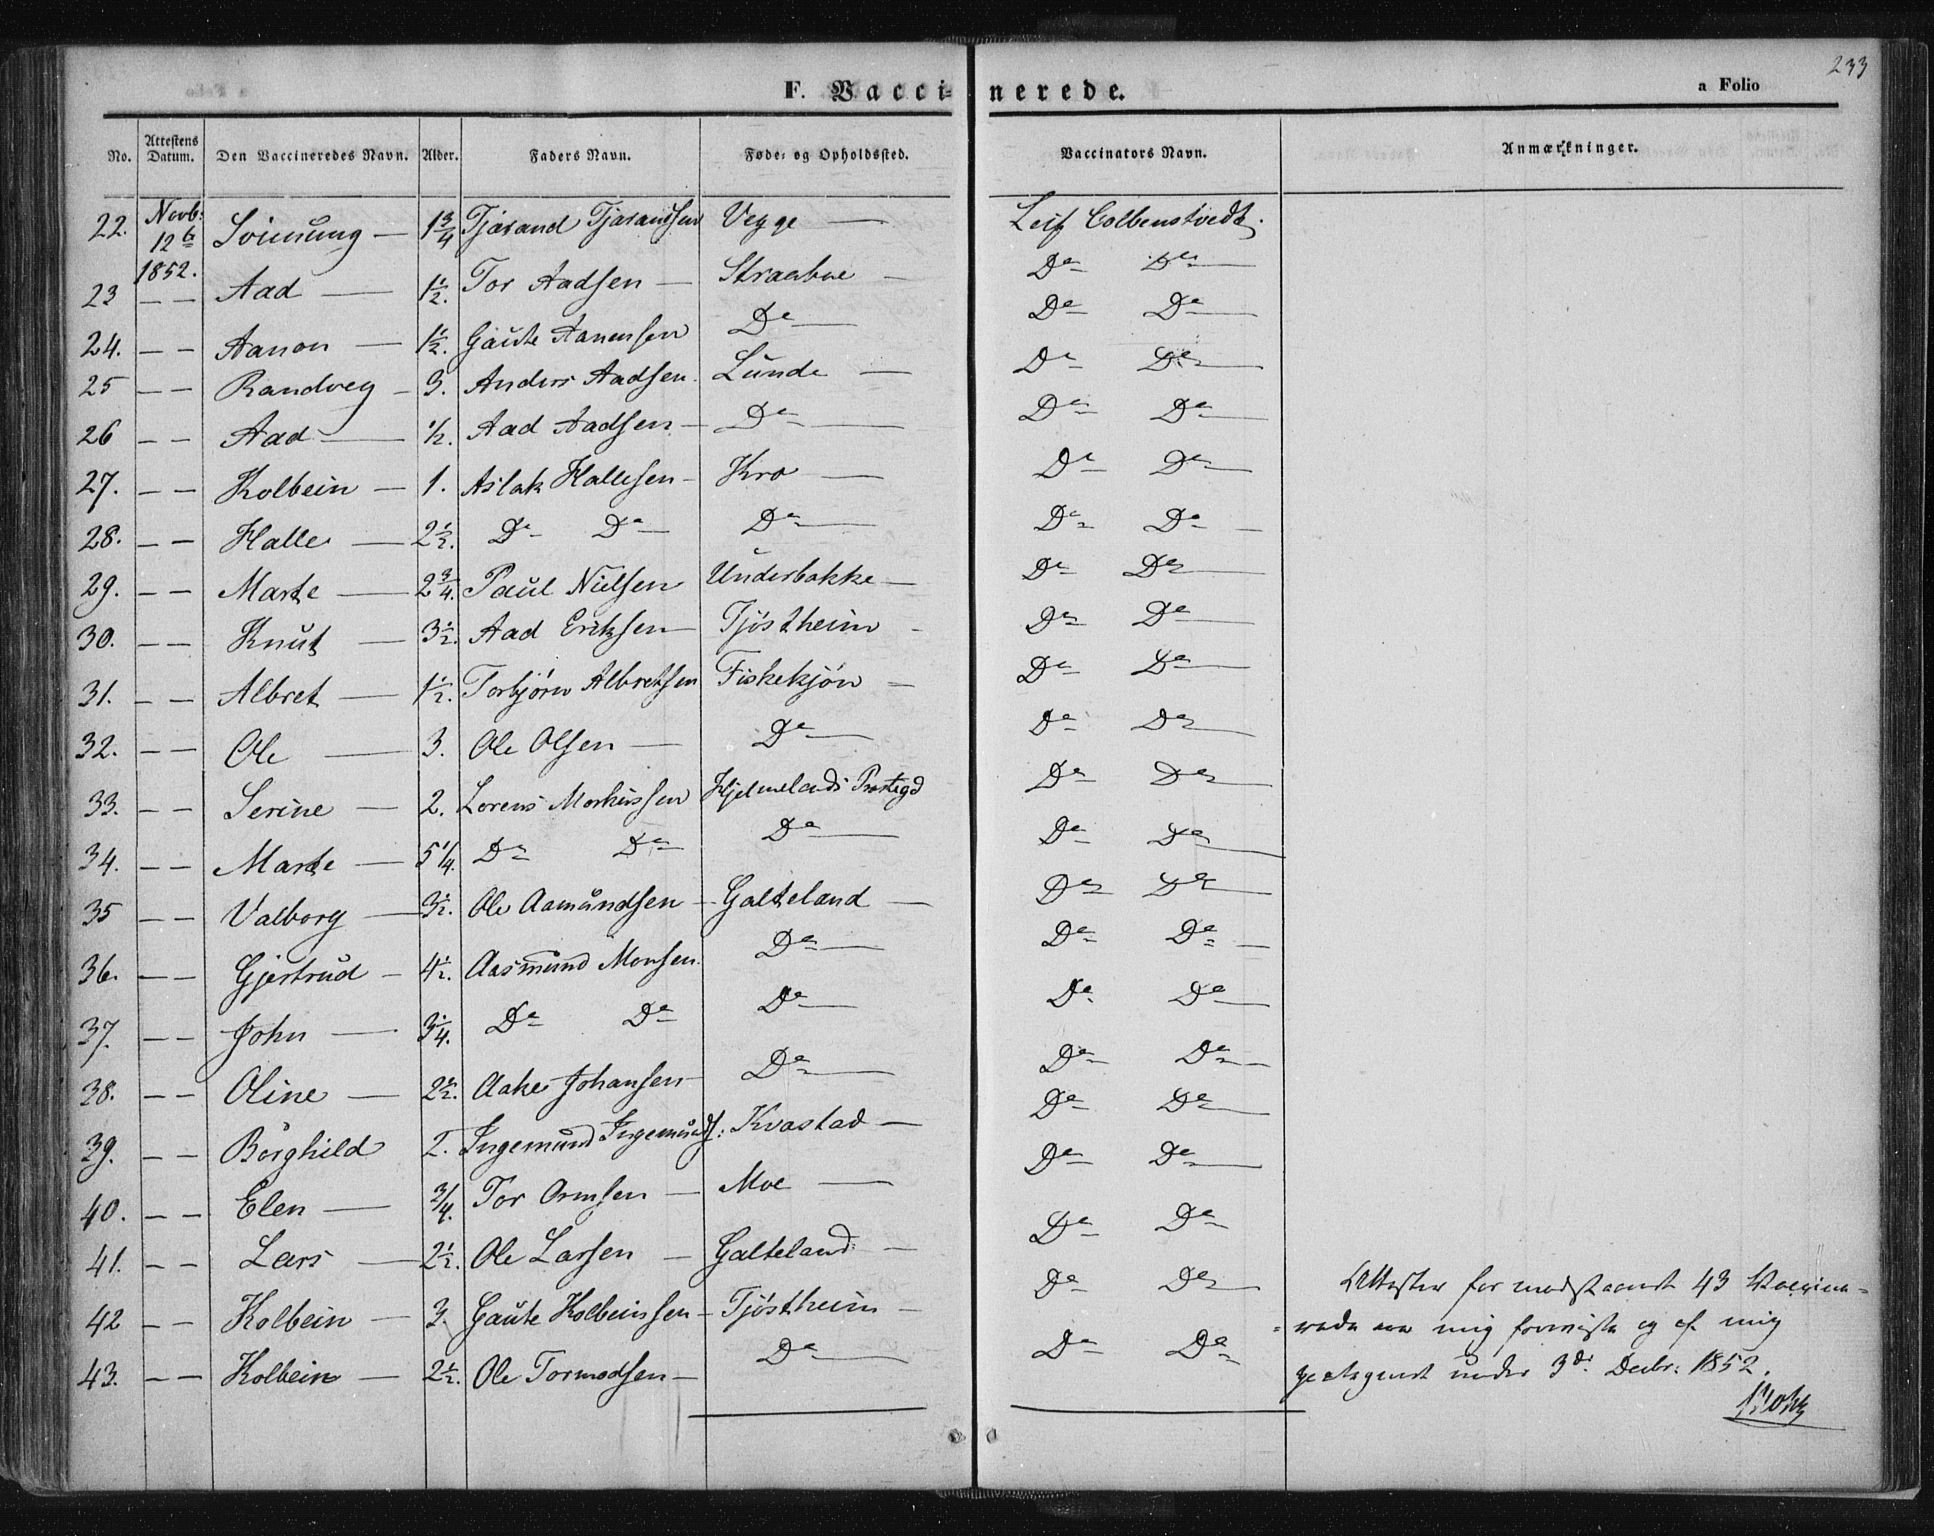 233
F. Vaccinerede. a Folio
No. Attestens Datum. Den Vaccineredes Navn. Alder. Faders Navn. Føde- og Opholdssted. Vaccinators Navn. Anmærkninger.
22. Novb: 12te 1852. 1 3/4 Tjørand Tjørandsen Vegge — Leif Colbenstvedt.
23 — — Aad — 1 1/2. Tor Aadsen — Straabøe — Do Do
24. — — Aanon — 1 1/2. Gaute Aanensen Do Do Do
25 — — Randveg — 3. Anders Aadsen Lunde — Do Do
26 — — Aad — 1/2. Aad Aadsen — Do Do Do
27. — — Kolbein — 1. Aslak Hallesen — Kro — Do Do
28. — — Halle — 2 1/2. Do Do Do Do Do
29. — — Marte — 2 3/4. Paul Nielsen Underbakke — Do Do
30. — — Knut — 3 1/2. Aad Eriksen — Tjöstheim — Do Do
31. — — Albret — 1 1/2. Torbjörn Albretsen Fiskekjön — Do Do
32. — — Ole — 3. Ole Olsen — Do Do Do
33. — — Serine — 2. Lorens Morkussen Hjelmelands Prestegd Do Do
34. — — Marte — 5 1/4. Do Do Do Do Do
35 — — Valborg — 3 1/2. Ole Aamundsen — Galteland — Do Do
36. — — Gjertrud — 4 1/2. Aasmund Monsen Do Do Do
37. — — John — 3 1/4. Do Do Do Do Do
38. — — Oline — 2 1/2. Aake Johansen — Do Do Do
39. — — Borghild 2. Ingemund Ingemunds: Kvastad — Do Do
40. — — Elen — 3/4. Tor Ormsen — Moe — Do Do
41. — — Lars — 2 1/2. Ole Larsen — Galteland — Do Do
42 — — Kolbein — 3. Gaute Kolbeinssen — Tjöstheim — Do Do
43. — — Kolbein — 2 1/2. Ole Tormodsen — Do Do Do
Attester for modstaaende 43 Vaccine-
rede ere mig foreviste og af mig
under 3de Decbr: 1852.